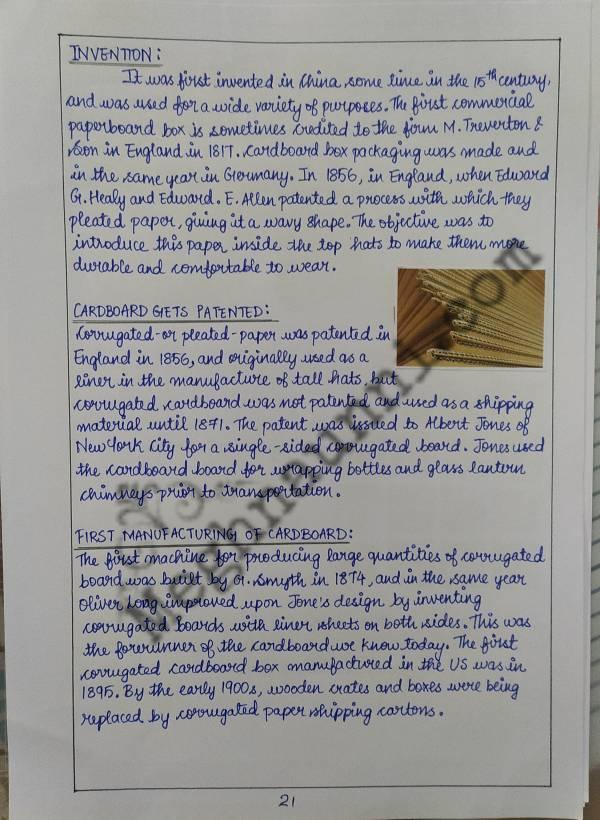 INVENTION:
It was first invented in China some time in the 15th century,
and was used for a wide variety of purposes. The first commercial
paperboard box is sometimes credited to the firm M. Treverton &
Son in England in 1817. Cardboard box packaging was made and
in the same year in Germany. In 1856, in England, when Edward
G. Healy and Edward. E. Allen patented a process with which they
pleated paper, giving it a wavy shape. The objective was to
introduce this paper inside the top hats to make them more
durable and comfortable to wear.
CARDBOARD GETS PATENTED:
Corrugated-or pleated-paper was patented in
England in 1856, and originally used as a
liner in the manufacture of tall hats, but
corrugated cardboard was not patented and used as a shipping
material until 1871. The patent was issued to Albert Jones of
New York City for a single-sided corrugated board. Jones used
the cardboard board for wrapping bottles and glass lantern
chimneys prior to transportation.
FIRST MANUFACTURING OF CARDBOARD:
The first machine for producing large quantities of corrugated
board was built by G. Smyth in 1874, and in the same year
Oliver Long improved upon Jone's design by inventing
corrugated boards with liner sheets on both sides. This was
the forerunner of the cardboard we know today. The first
corrugated cardboard box manufactured in the US was in
1895. By the early 1900s, wooden crates and boxes were being
replaced by corrugated paper shipping cartons.
21